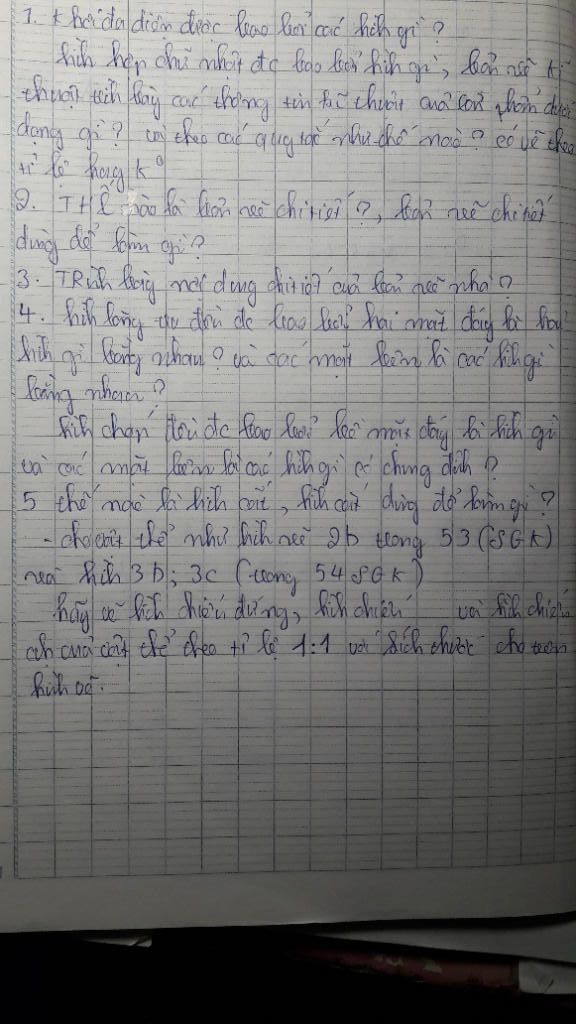 1. Khối đa diện được bao bởi các hình gì?
hình hộp chữ nhật đc bao bởi hình gì, bản vẽ kĩ
thuật trình bày các thông tin kĩ thuật của sản phẩm dưới
dạng gì? và theo các quy tắc như thế nào? có vẽ theo
tỉ lệ hay k°
2. Thế nào là bản vẽ chi tiết?, bản vẽ chi tiết
dùng để làm gì?
3. TRình bày nội dung chi tiết của bản vẽ nhà?
4. hình lăng trụ đều đc bao bởi hai mặt đáy là hai
hình gì bằng nhau? và các mặt bên là các hình gì
bằng nhau?
hình chóp đều đc bao bởi mặt đáy là hình gì
và các mặt bên là các hình gì có chung đỉnh?
5 thế nào là hình cắt, hình cắt dùng để làm gì?
- cho vật thể như hình vẽ 2b trong 53 (SGK)
và hình 3b; 3c (trong 54 SGK)
hãy vẽ hình chiếu đứng, hình chiếu và hình chiếu
cạnh của vật thể theo tỉ lệ 1:1 với kích thước cho trên
hình vẽ.